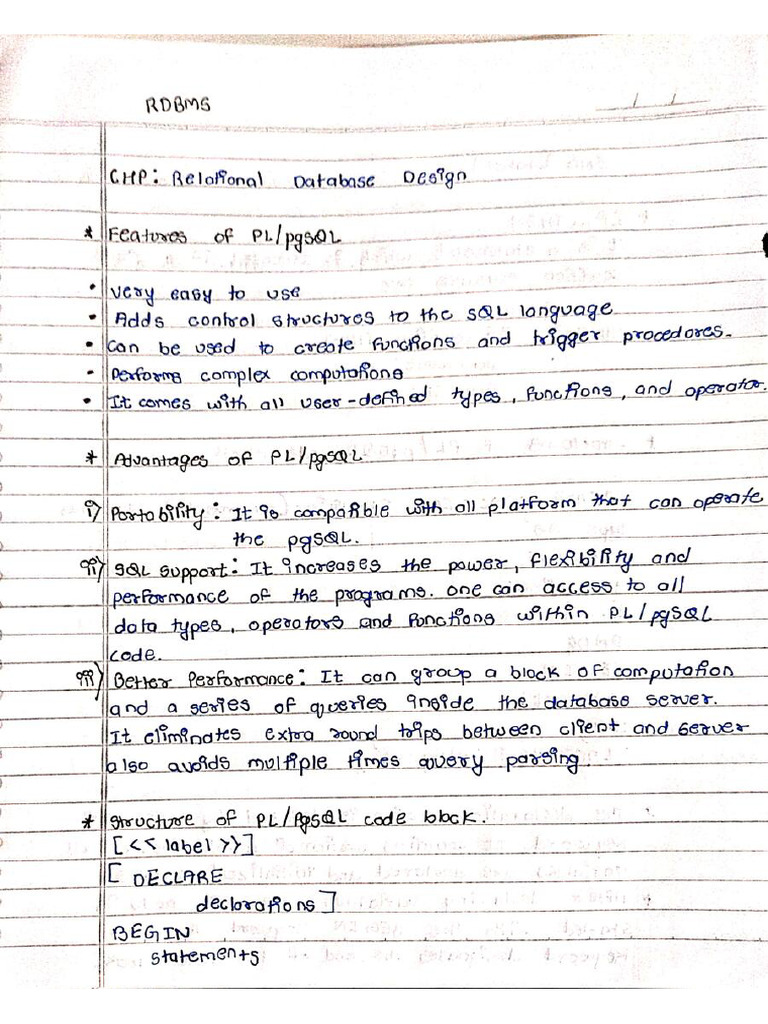 RDBMS
/ /
CHP: Relational Database Design
* Features of PL/pgSQL
• very easy to use
• Adds control structures to the SQL language
• can be used to create functions and trigger procedores.
• Performs complex computations
• It comes with all user-defined types, functions, and operator.
* Advantages of PL/pgSQL
i) Portability: It is compatible with all platform that can operate
the pgSQL.
ii) SQL support: It increases the power, flexibility and
performance of the programs. one can access to all
data types, operators and functions within PL/pgSQL
code.
iii) Better Performance: It can group a block of computation
and a series of queries inside the database server.
It eliminates extra round trips between client and server
also avoids multiple times query parsing.
* structure of PL/PgSQL code block.
[<<label>>]
[ DECLARE
declarations]
BEGIN
statements